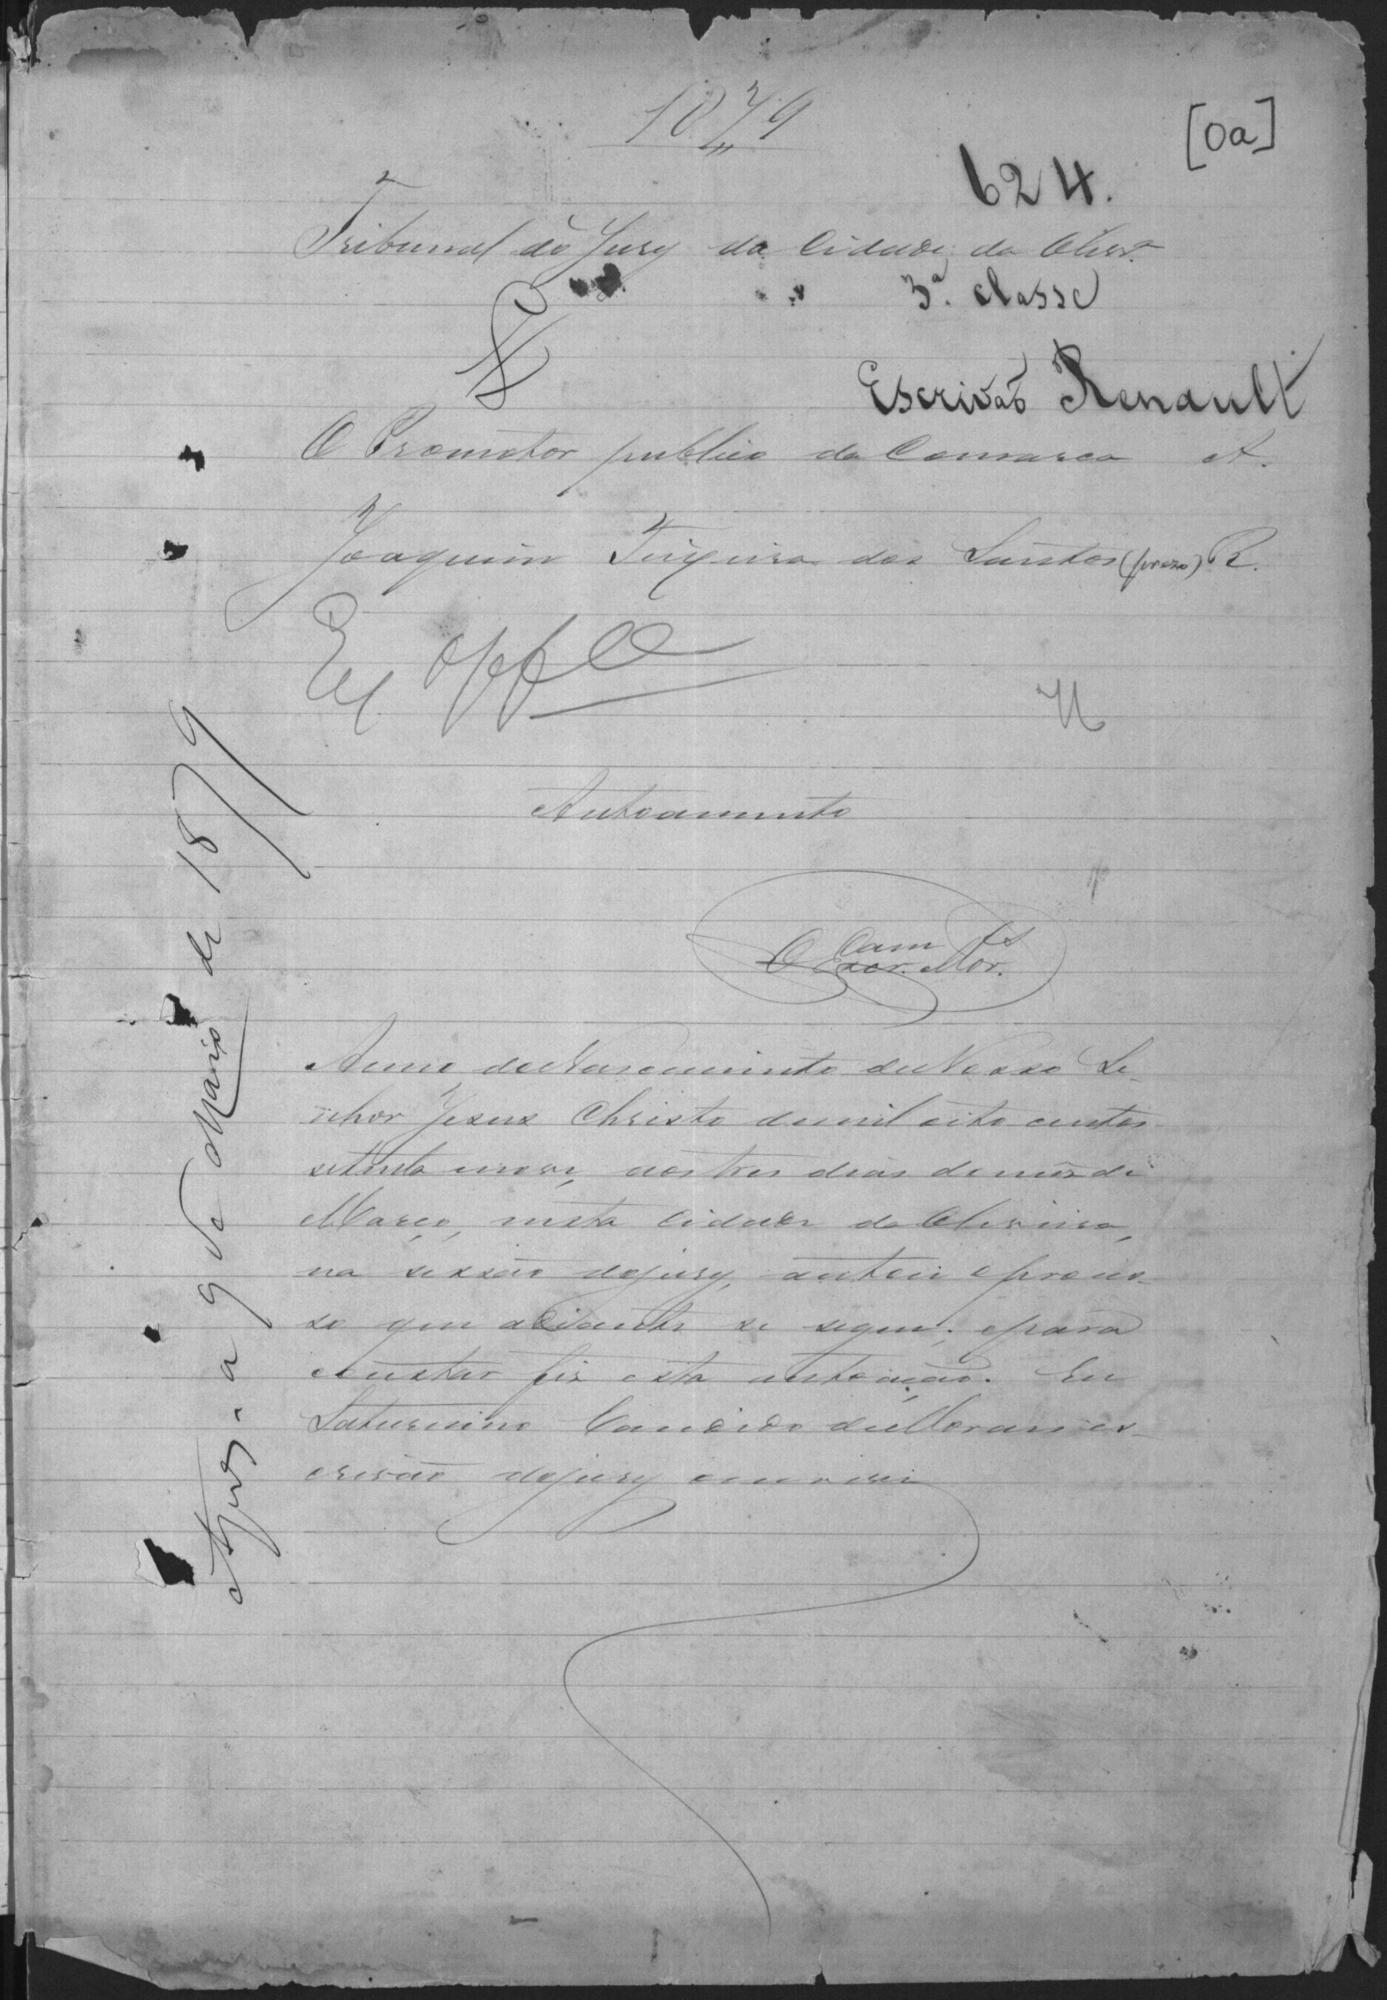 1879
[0a]
624.
Tribunal do Jury da Cidade da Olivr.ª
3ª. classe
Escrivaõ Renault
O Promotor publico da Comarca A.
Joaquim Teixeira dos Santos (prezo) R.
Ex Off
Autoamento
O Escr. Mor.
Anno do Nascimento de Nosso Se-
nhor Jesus Christo de mil oito centos
setenta e nove, aos tres dias do mes de
Março, nesta Cidade da Oliveira,
na sessão do jury, autoei o proces-
so que adiante se segue; e para
constar fiz esta autoação. Eu
Saturnino Candido de Moraes es-
crivão do jury escrevi
a 9 de Março de 1879